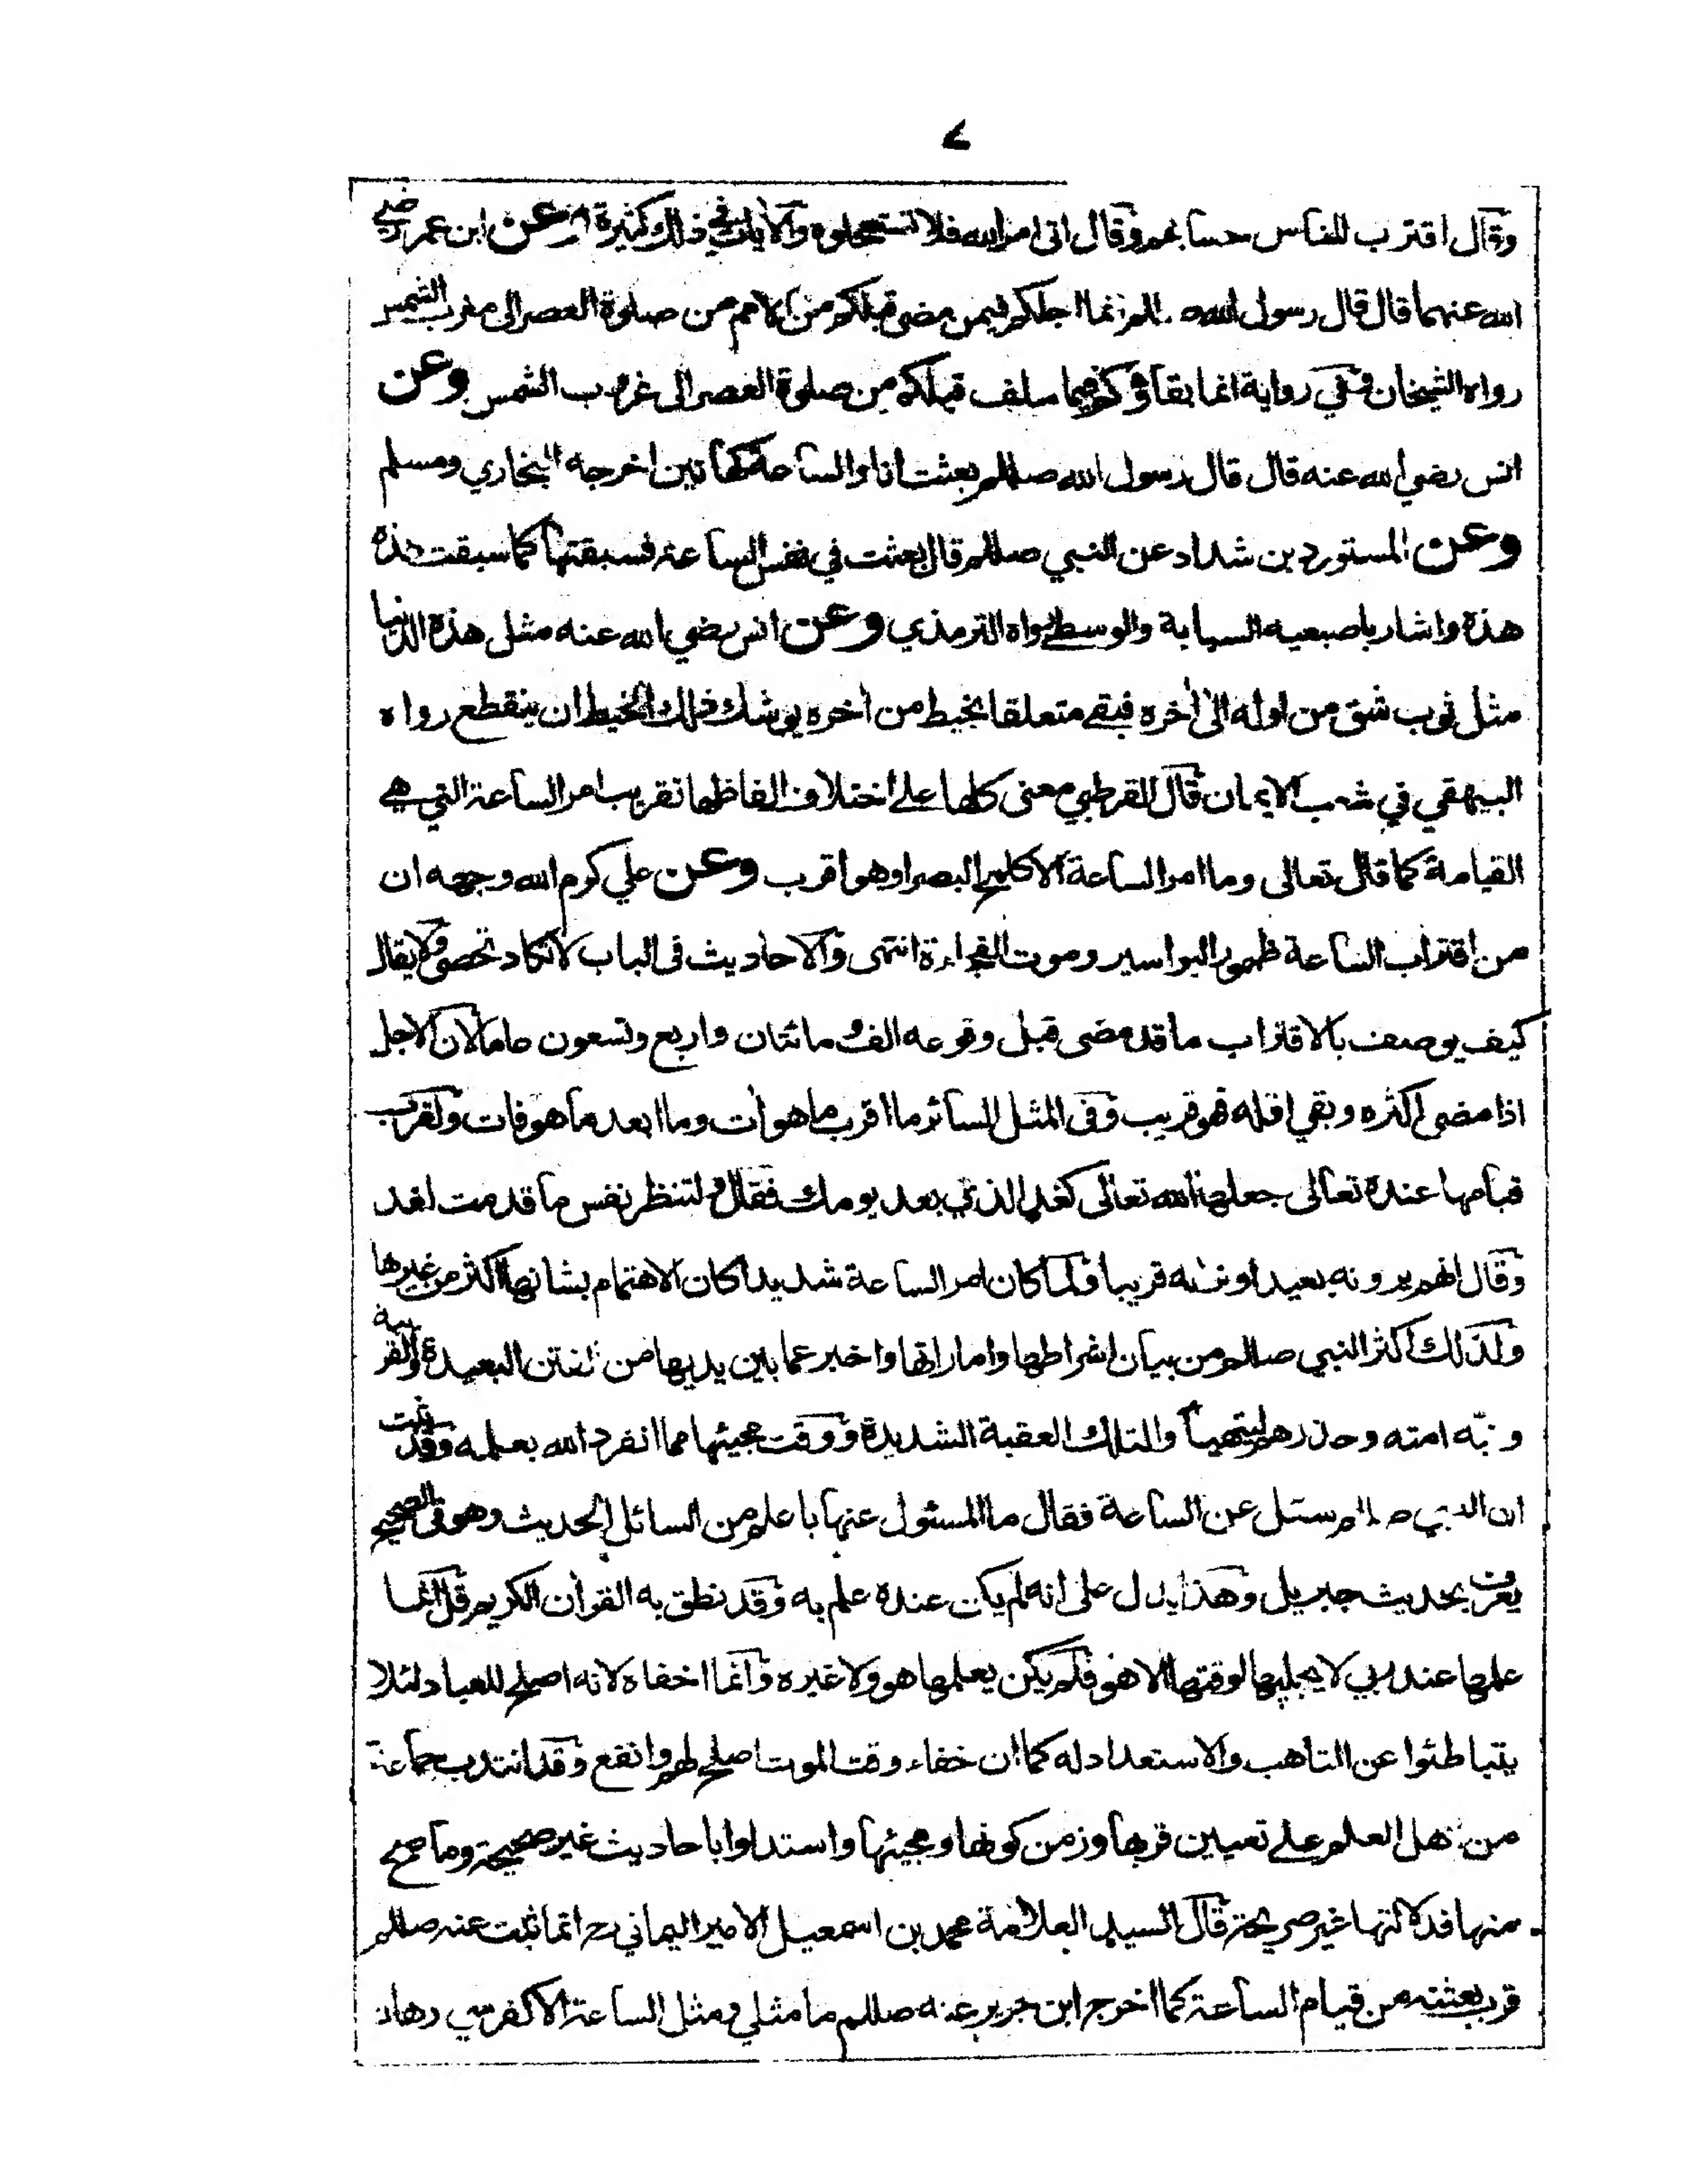 وقال اقترب للناس حسابهم وقال اتى امر الله فلا تستعجلوه والآيات في ذلك كثيرة وعن ابن عمر رضي
الله عنهما قال قال رسول الله انما اجلكم فيمن مضى قبلكم من الامم من صلوة العصر الى مغرب الشمس
رواه الشيخان وفي رواية انما بقاؤكم فيما سلف قبلكم من صلوة العصر الى غروب الشمس وعن
انس رضي الله عنه قال قال رسول الله صللم بعثت انا والساعة كهاتين اخرجه البخاري ومسلم
وعن المستورد بن شداد عن النبي صللم قال بعثت في نفس الساعة فسبقتها كما سبقت هذه
هذه واشار باصبعيه السبابة والوسطى رواه الترمذي وعن انس رضي الله عنه مثل هذه الدنيا
مثل ثوب شق من اوله الى آخره فبقي متعلقا بخيط من آخره يوشك ذلك الخيط ان ينقطع رواه
البيهقي في شعب الايمان قال القرطبي معنى كلها على اختلاف الفاظها تقريب امر الساعة التي هي
القيامة كما قال تعالى وما امر الساعة الا كلمح البصر او هو اقرب وعن علي كرم الله وجهه ان
من اقتراب الساعة ظهور البواسير وموت الفجاءة انتهى والاحاديث في الباب لا تكاد تحصى ولا يقال
كيف يوصف بالاقتراب ما قد مضى قبل وقوعه الف ومائتان واربع وتسعون عاما لان الاجل
اذا مضى اكثره وبقي اقله فهو قريب وفي المثل السائر ما اقرب ما هو آت وما ابعد ما هو فات ولقرب
قيامها عنده تعالى جعلها الله تعالى كغد الذي بعد يومك فقال ولتنظر نفس ما قدمت لغد
وقال انهم يرونه بعيدا ونراه قريبا ولما كان امر الساعة شديدا كان الاهتمام بشانها اكثر من غيرها
ولذلك اكثر النبي صللم من بيان اشراطها واماراتها واخبر عما بين يديها من الفتن البعيدة والقريبة
ونبّه امته وحذرهم ليتهيأ والتلك العقبة الشديدة ووقت مجيئها مما انفرد الله بعلمه وقد ثبت
ان النبي صللم سئل عن الساعة فقال ما المسئول عنها باعلم من السائل الحديث وهو في الصحيح
يعرف بحديث جبريل وهذا يدل على انه لم يكن عنده علم به وقد نطق به القرآن الكريم قل انما
علمها عند ربي لا يجليها لوقتها الا هو فلم يكن يعلمها هو ولا غيره وانما اخفاه لانه اصلح للعباد لئلا
يتباطئوا عن التاهب والاستعداد له كما ان خفاء وقت الموت اصلح لهم وانفع وقد انتدب جماعة
من اهل العلم على تعيين قربها وزمن كونها ومجيئها واستدلوا باحاديث غير صحيحة وما صح
منها فدلالتها غير صريحة قال السيد العلامة محمد بن اسمعيل الامير اليماني رح انما ثبت عنه صللم
قرب بعثته من قيام الساعة كما اخرج ابن جرير عنه صللم ما مثلي ومثل الساعة الا كفرسي رهان